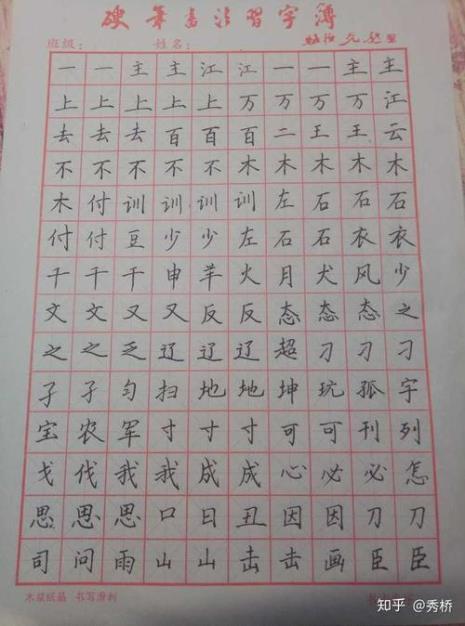 硬筆書法習字簿
班级： 姓名：
一一主主江江一一主主
上上上上上万万万万江
去去去百百百二王王云
不不不不不木木木木木
木付训训训训左石石石
付付豆少少左石石衣衣
干干干申羊火月犬风少
文文又又反反态态态之
之之乏辽辽辽超刁刁刁
孑孑匀扫地地坤玩孤字
宝农军寸寸寸可可刊列
戈伐我我成成心必必怎
思思思口日丑因因刀刀
司问雨山山击击画臣臣
木浆纸晶 书写滑利
知乎 @秀桥